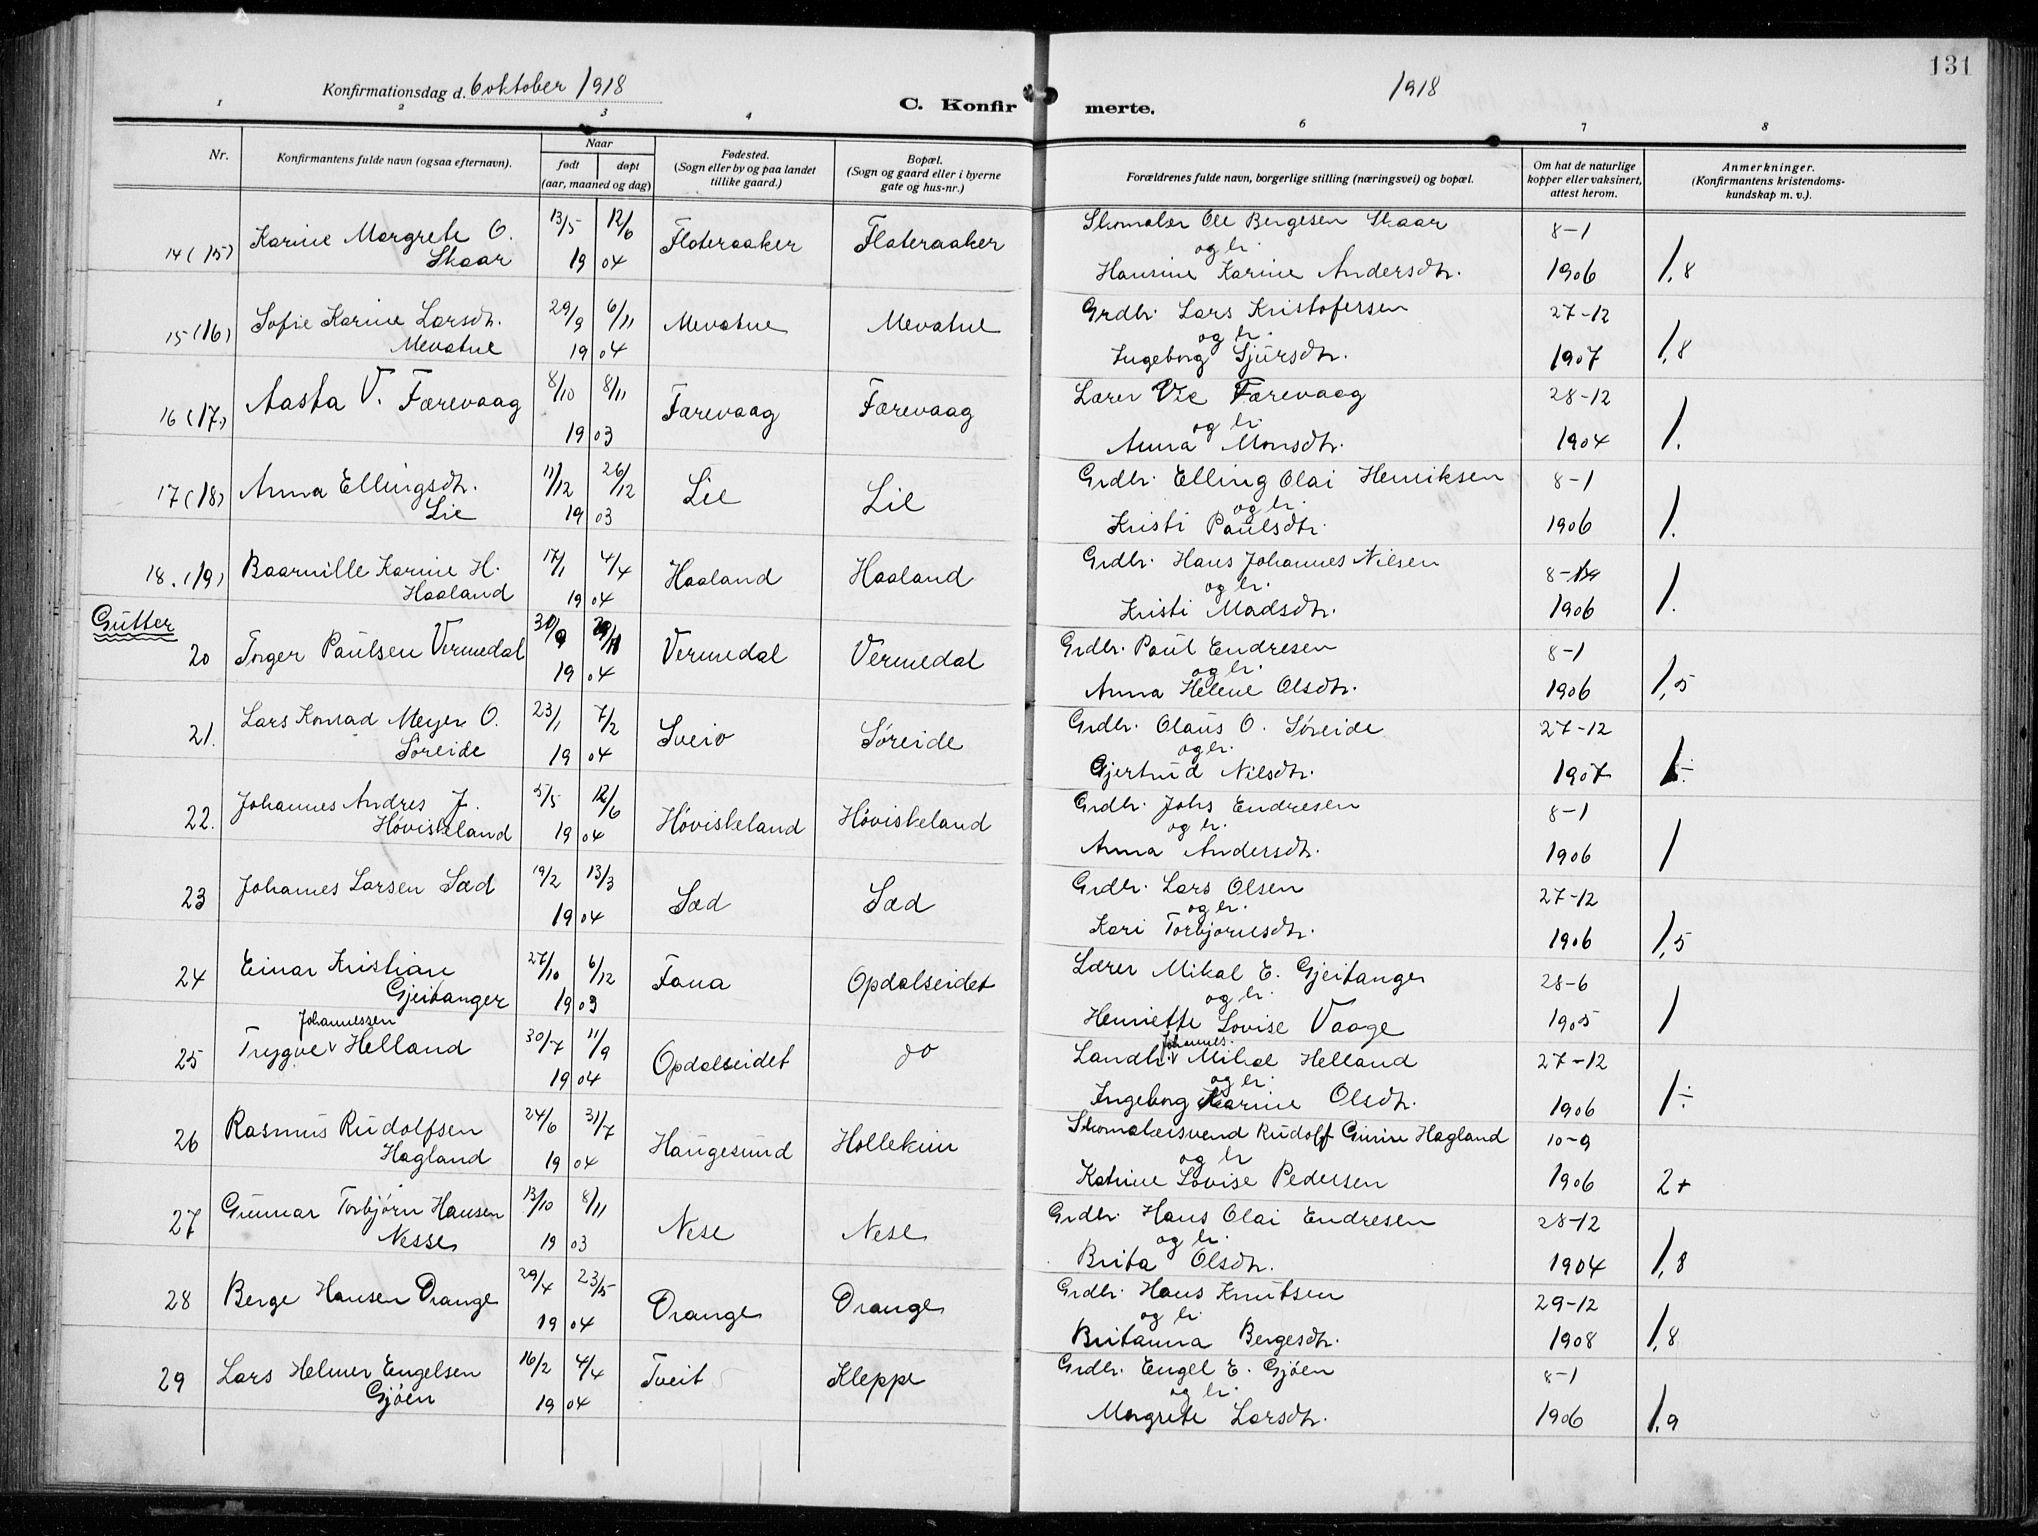 131
Konfirmationsdag d. 6 oktober 1918
1918
C. Konfirmerte.
1 2 3 4 6 7 8
Nr.
Konfirmantens fulde navn (ogsaa efternavn).
Naar
født døpt
(aar, maaned og dag)
Fødested.
(Sogn eller by og paa landet
tillike gaard.)
Bopæl.
(Sogn og gaard eller i byerne
gate og hus-nr.)
Forældrenes fulde navn, borgerlige stilling (næringsvei) og bopæl.
Om hat de naturlige
kopper eller vaksinert,
attest herom.
Anmerkninger.
(Konfirmantens kristendoms-
kundskap m. v.).
14 (15) Karine Margrete O. 13/5 12/6 Flateraaker Flateraaker Skomaker Ole Bergesen Skaar 8-1
Skaar 19 04 og hr. Hansine Karine Andersdtr. 1906 1,8
15 (16) Sofie Karine Larsdtr. 29/9 6/11 Mevatne Mevatne Grdbr. Lars Kristofersen 27-12
Mevatne 19 04 og hr. Ingeborg Sjursdtr. 1907 1,8
16 (17.) Aasta V. Færevaag 8/10 8/11 Færevaag Færevaag Lærer Færevaag 28-12
19 03 og hr. Anna Monsdtr. 1904 1.
17 (18) Anna Ellingsdtr. 11/12 26/12 Lie Lie Grdbr. Elling Olai Henriksen 8-1
Lie 19 03 og hr. Kristi Paulsdtr. 1906 1.
18. (19) Baarnille Karine H. 17/1 4/4 Haaland Haaland Grdbr. Hans Johannes Nilsen
Haaland 19 04 og hr. Kristi Madsdtr. 1906 1.
Gutter
20 Torger Paulsen Vermedal Vermedal Vermedal Grdbr. Paul Endresen 8-1
19 04 og hr. Anna Helene Olsdtr. 1906 1,5
21. Lars Konrad Meyer O. 23/1 7/2 Sveio Søreide Grdbr. Olaus O. Søreide 27-12
Søreide 19 04 og hr. Gjertrud Nilsdtr. 1907 1÷
22. Johannes Andres J. 5/5 12/6 Høviskeland Høviskeland Grdbr. Johs Endresen 8-1
Høviskeland 19 04 og hr. Anna Andersdtr. 1906 1
23 Johannes Larsen Sæd 19/2 13/3 Sæd Sæd Grdbr. Lars Olsen 27-12
19 04 og hr. Kari Torbjørnsdtr. 1906 1,5
24 Einar Kristian 27/10 6/12 Fana Opdalseidet Lærer Mikal E. Gjeitanger 28-6
Gjeitanger 19 03 og hr. Henriette Lovise Vaage 1905 1
25 Trygve Johannessen Helland 30/7 11/9 Opdalseidet do Landh. Johannes Mikal Helland 27-12
19 04 og hr. Ingeborg Karine Olsdtr. 1906 1÷
26 Rasmus Rudolfsen 24/6 31/7 Haugesund Hollekim Skomakersvend Rudolf Hagland 10-9
Hagland 19 04 og hr Katrine Lovise Pedersen 1906 2+
27 Gunnar Torbjørn Hansen 13/10 8/11 Nese Nese Grdbr. Hans Olai Endresen 28-12
Nesse 19 03 og hr. Brita Olsdtr. 1904 1,8
28 Berge Hansen Drange 29/4 23/5 Drange Drange Grdbr. Hans Knutsen 29-12
19 04 og hr Britanna Bergesdtr. 1908 1,8
29 Lars Helmer Engelsen 16/2 4/4 Tveit Kleppe Grdbr. Engel E. Gjøen 8-1
Gjøen 19 04 og hr. Margrete Larsdtr. 1906 1,9